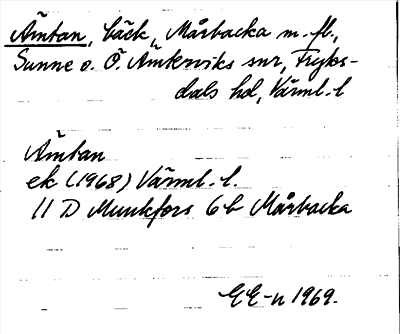 Ämtan, bäck, Mårbacka m. fl.,
Sunne o. Ö. Ämterviks snr, Fryks-
dals hd, Värml. l
Ämtan
ek (1968) Värml. l.
11 D Munkfors 6 b Mårbacka
EE-n 1969.